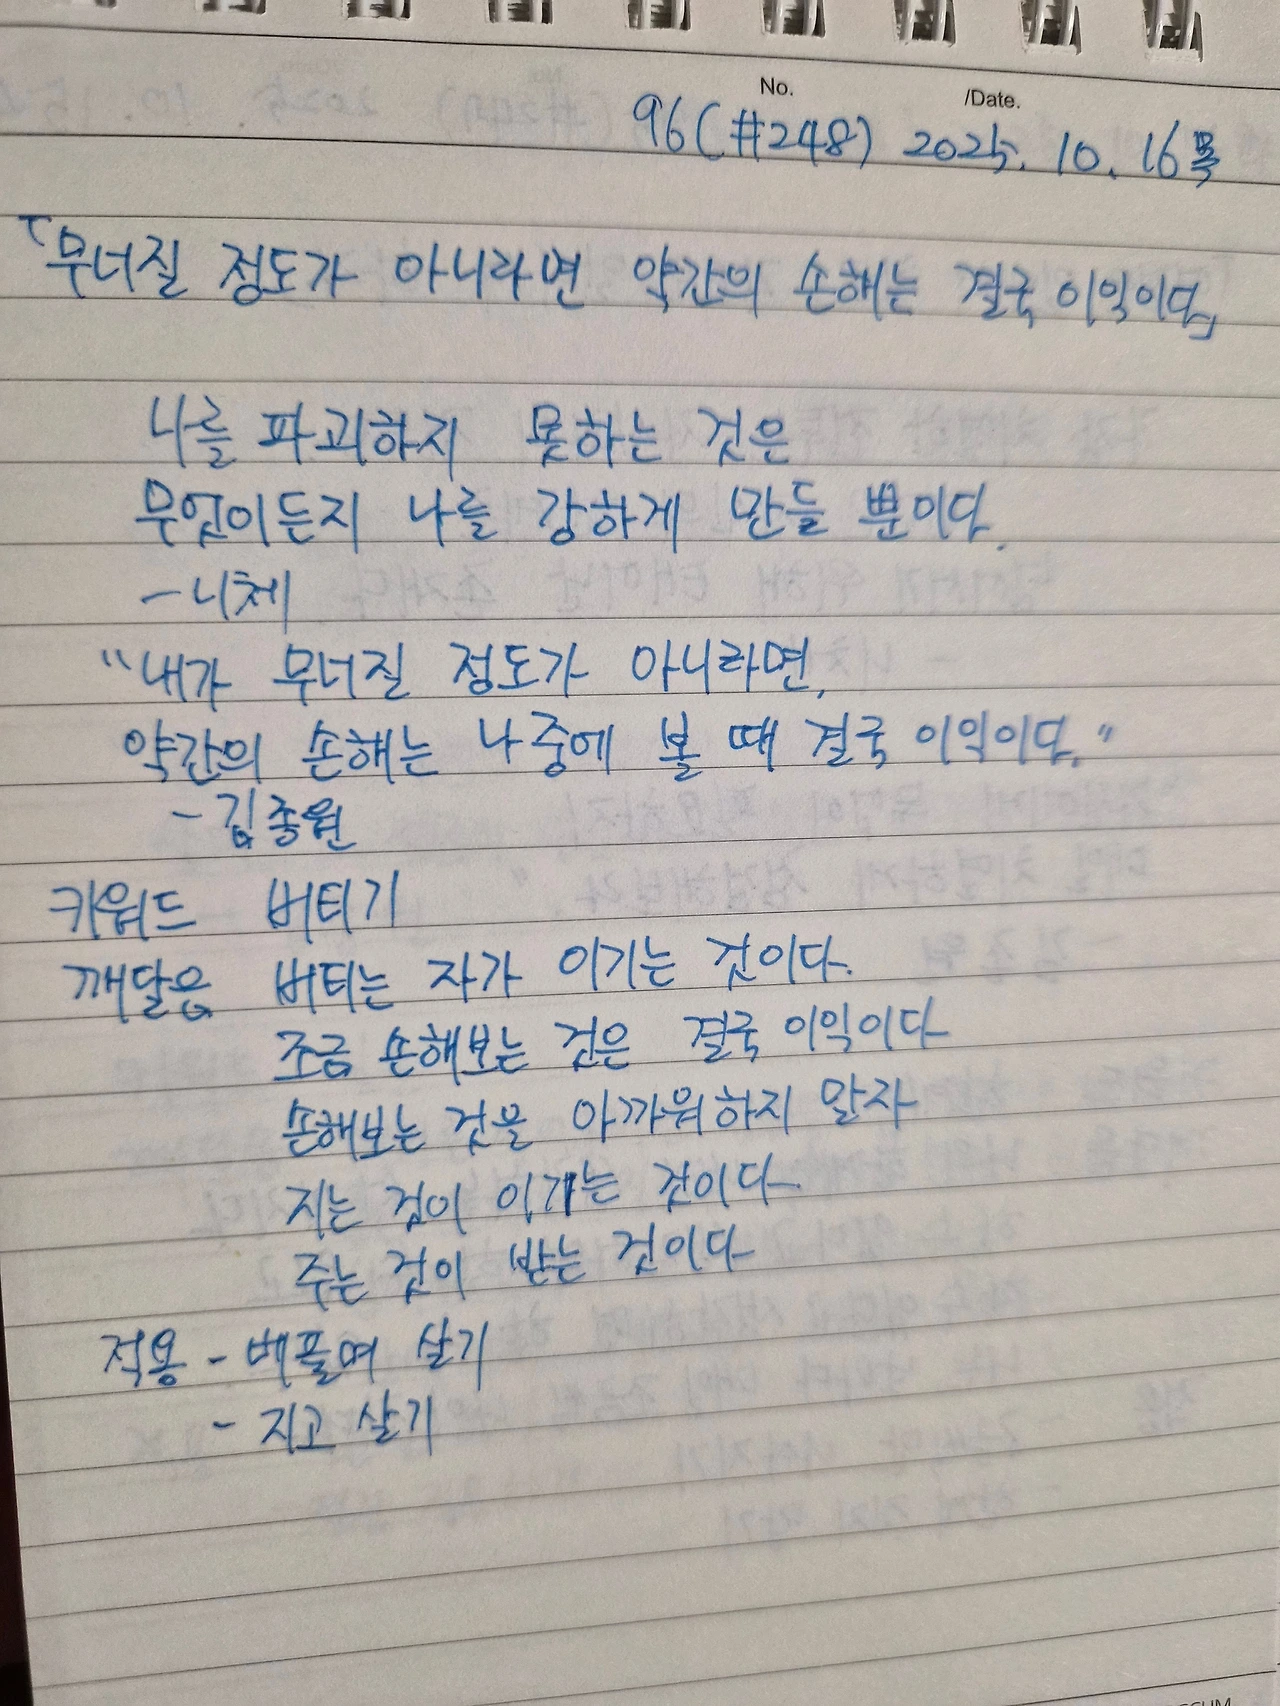 No. /Date.
96(#248) 2025. 10. 16목
「무너질 정도가 아니라면 약간의 손해는 결국 이익이다」
나를 파괴하지 못하는 것은
무엇이든지 나를 강하게 만들 뿐이다.
-니체
"내가 무너질 정도가 아니라면,
약간의 손해는 나중에 볼 때 결국 이익이다."
-김종원
키워드 버티기
깨달음 버티는 자가 이기는 것이다.
조금 손해보는 것은 결국 이익이다
손해보는 것을 아까워하지 말자
지는 것이 이기는 것이다.
주는 것이 받는 것이다
적용 - 베풀며 살기
- 지고 살기